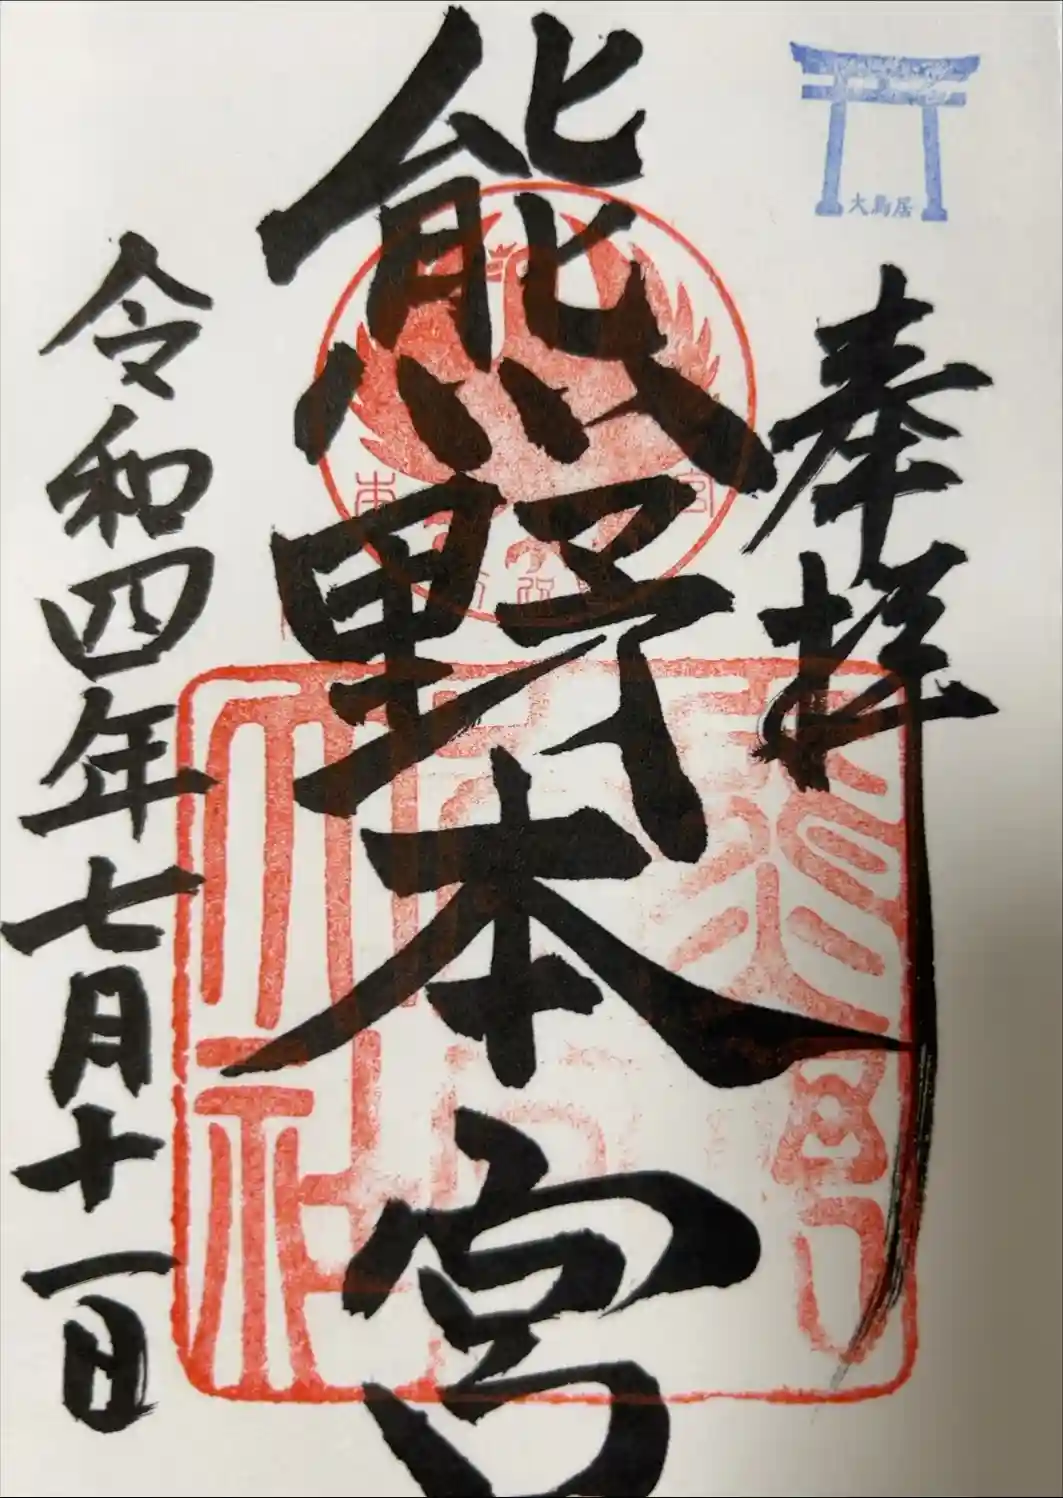 大鳥居
奉拝
熊野本宮
令和四年七月十一日